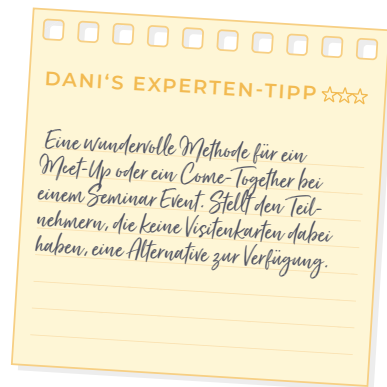 DANI'S EXPERTEN-TIPP
Eine wundervolle Methode für ein
Meet-Up oder ein Come-Together bei
einem Seminar Event. Stellt den Teil-
nehmern, die keine Visitenkarten dabei
haben, eine Alternative zur Verfügung.